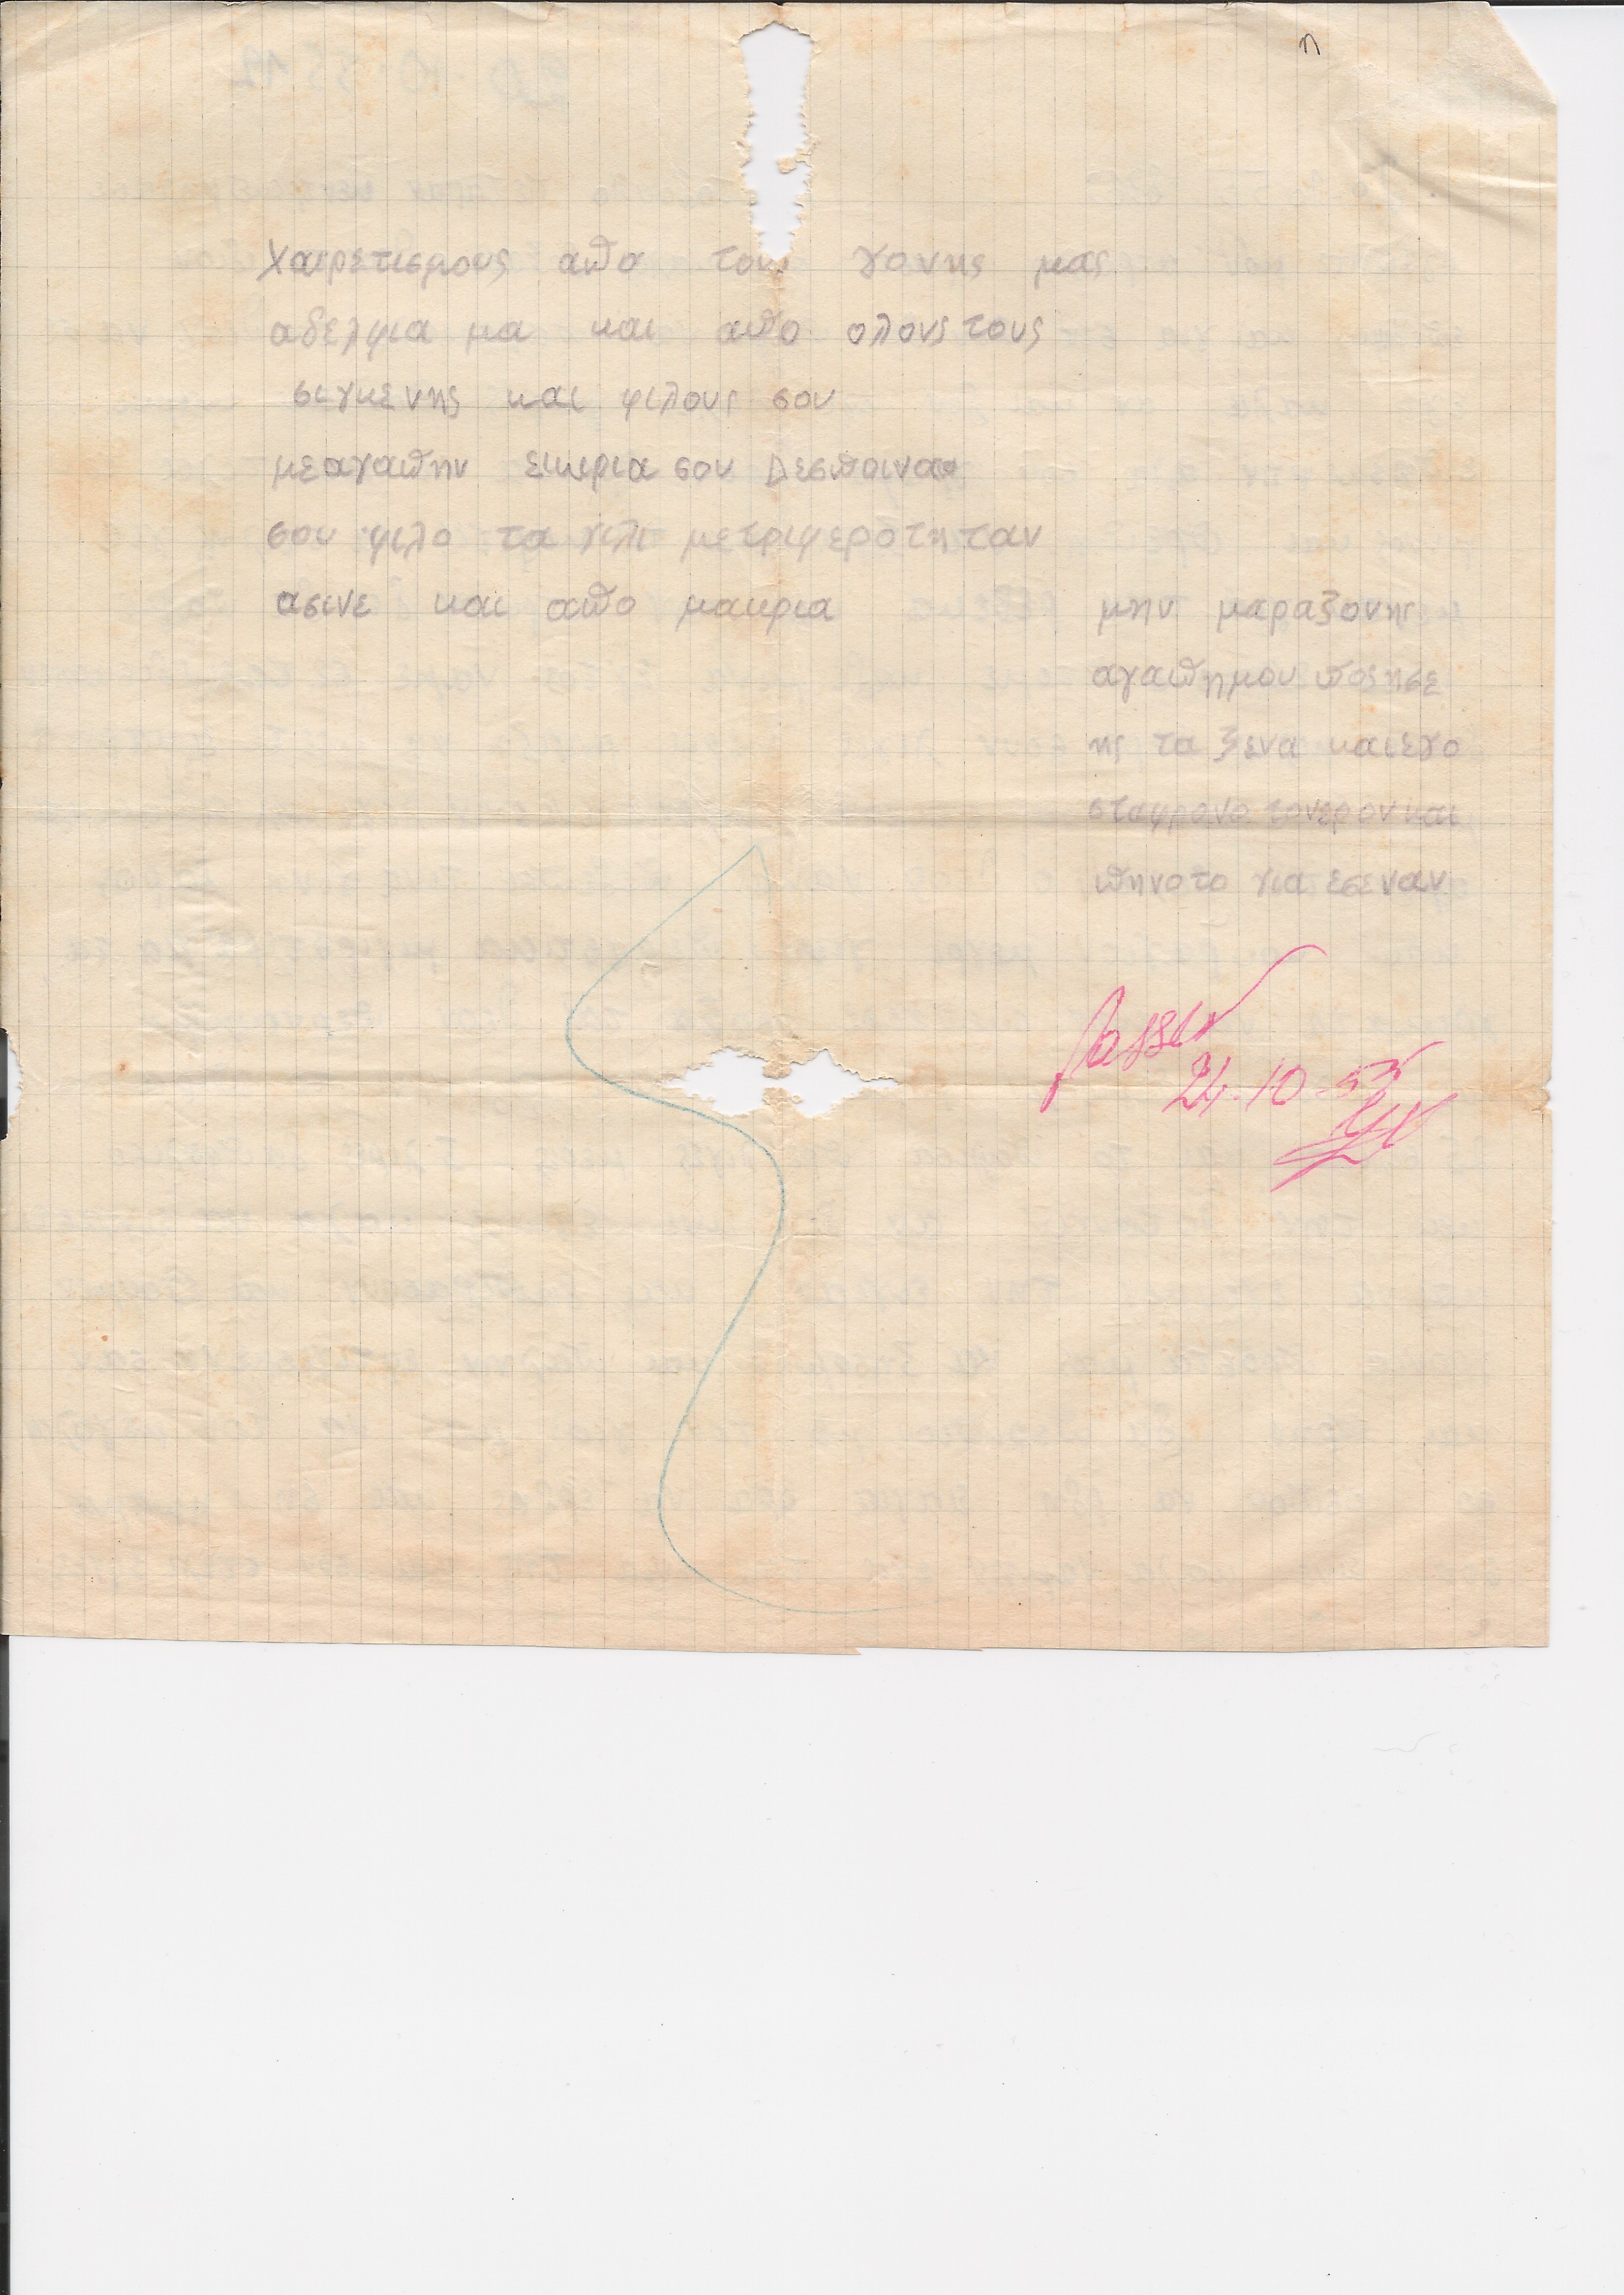 η
χαιρετισμους απο τους γονης μας
αδελφια μα και απο ολους τους
σιγκενης και φιλους σου
μεαγαπην εικιρια σου Δεσποινα
σου φιλο τα χιλι μετριφεροτηταν
ασινε και απο μακρια
μην μαραζονης
αγαπημου ποςησε
ης τα ξενα καιεγο
σταφρονο τονερονκαι
πηνοτο για εσεναν
Passed
24.10.55